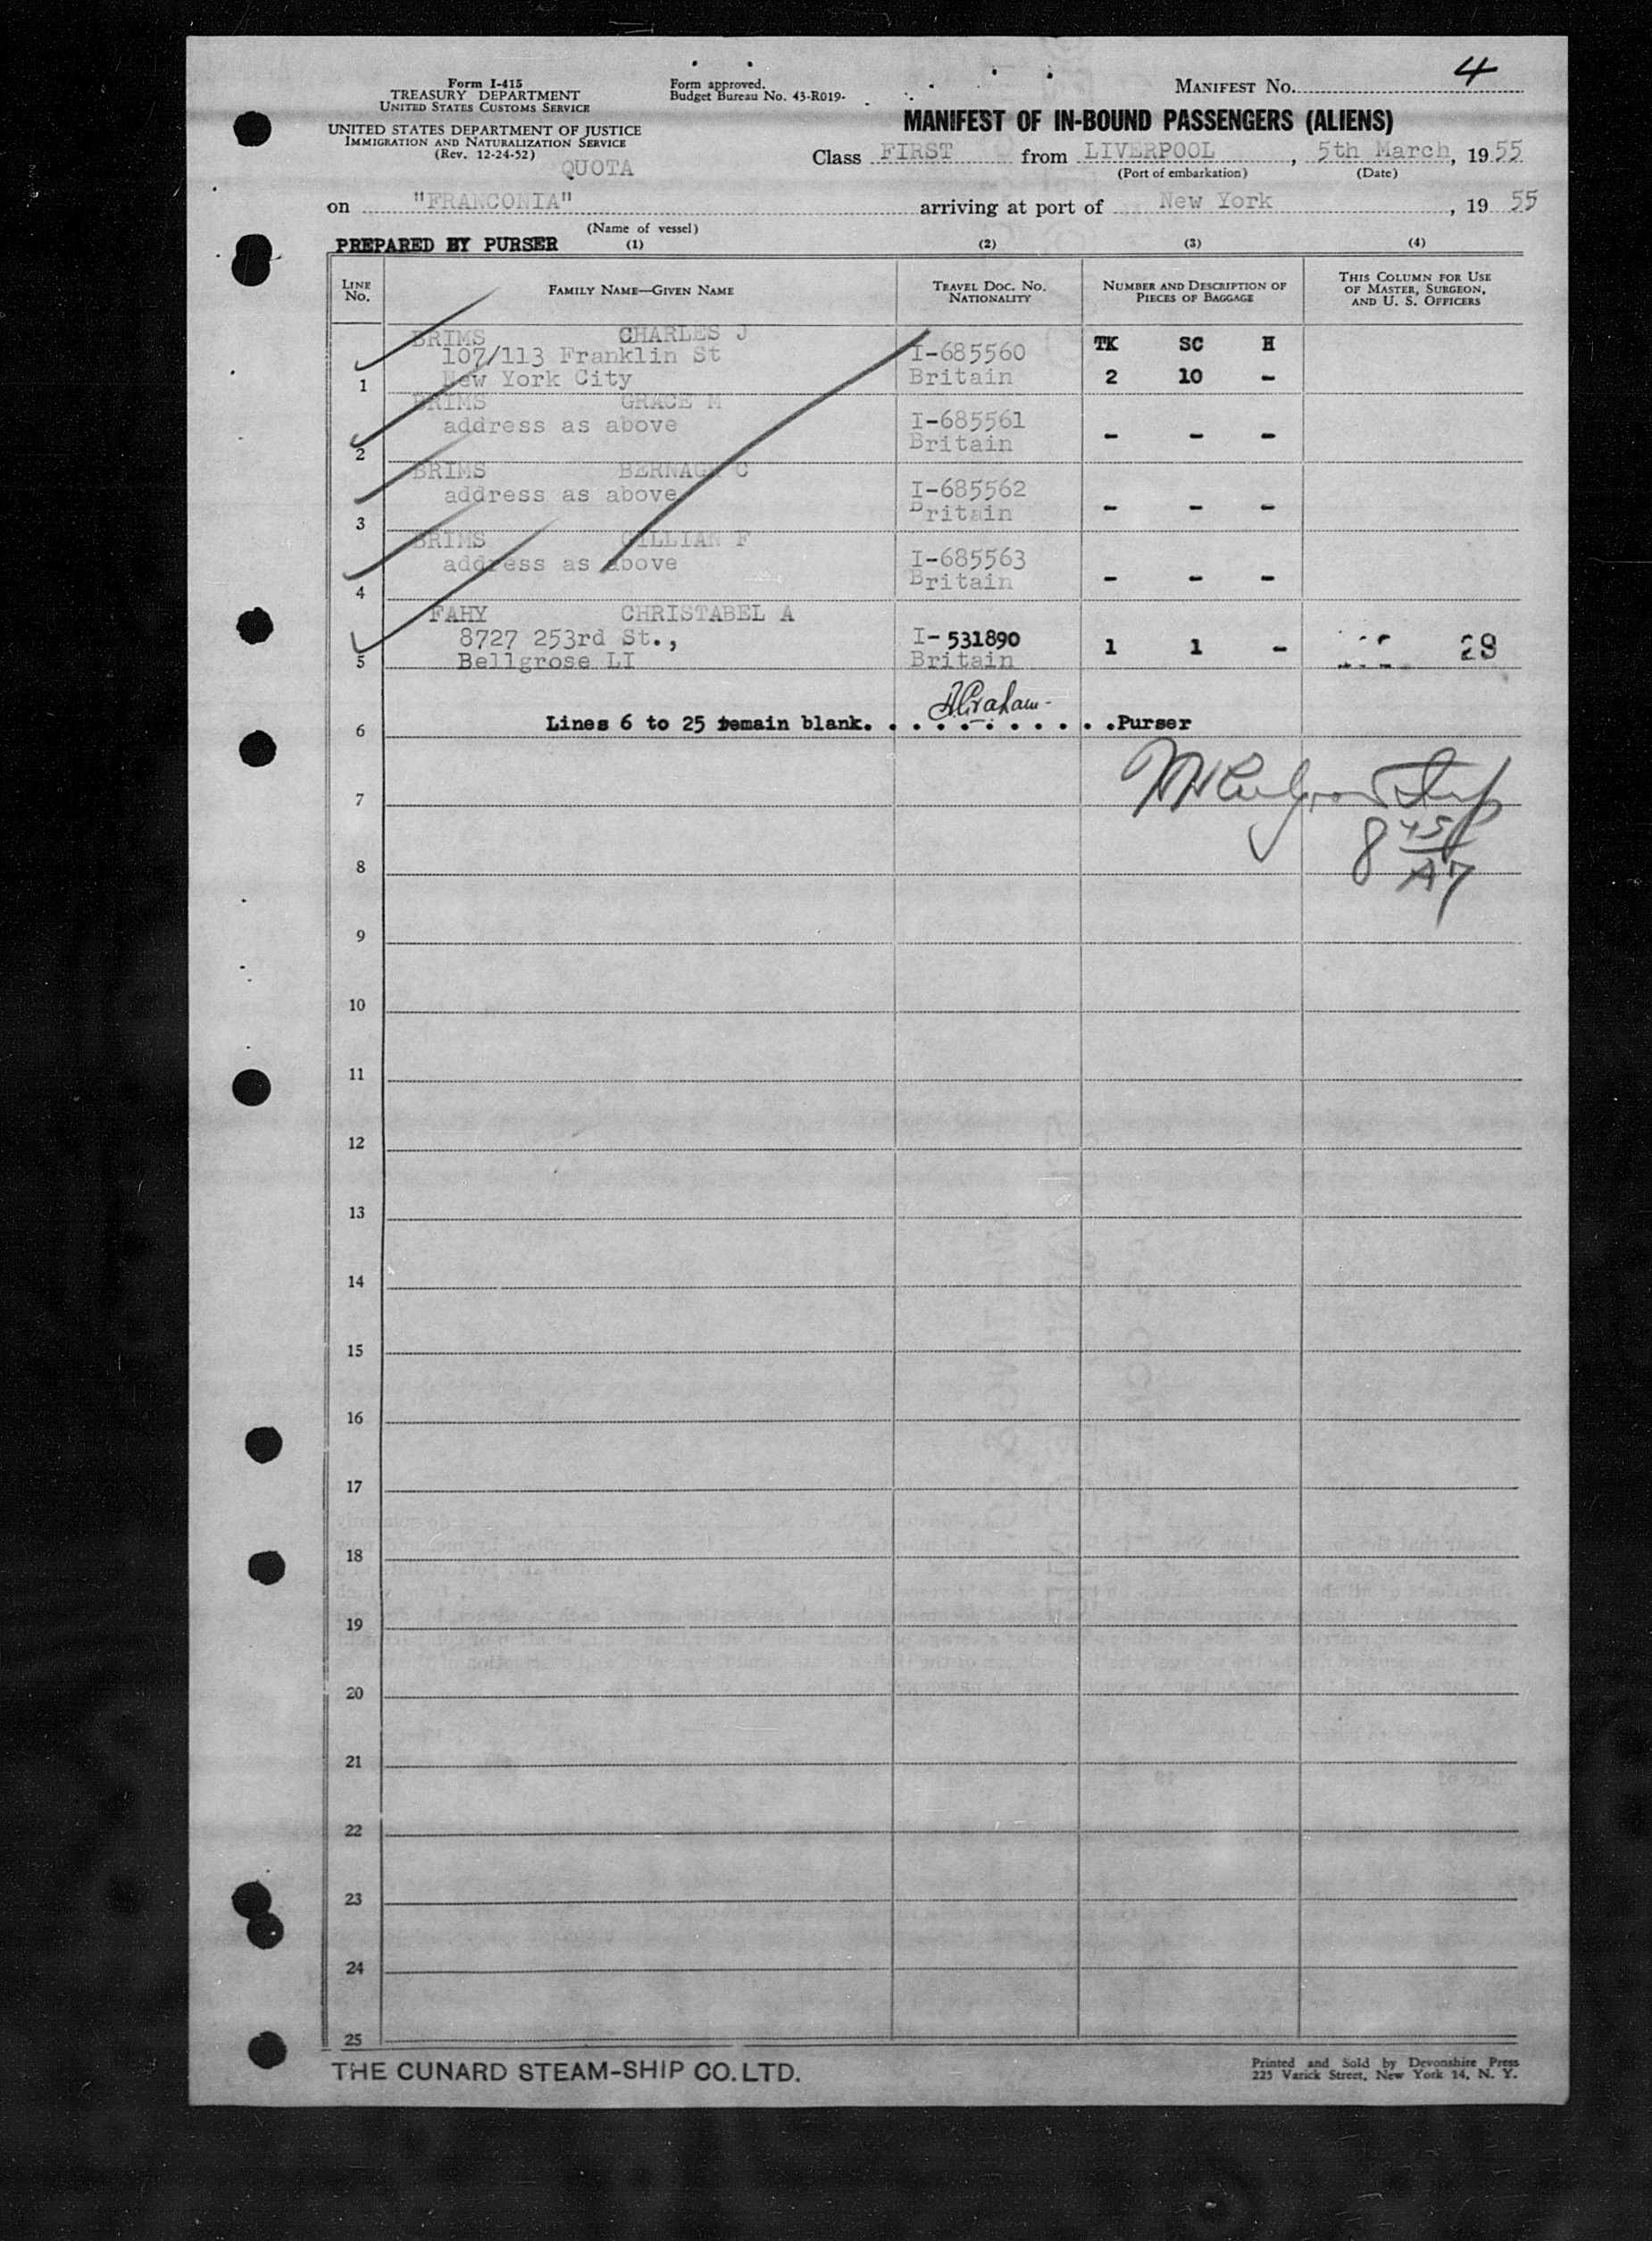 Form I-415
TREASURY DEPARTMENT
UNITED STATES CUSTOMS SERVICE
UNITED STATES DEPARTMENT OF JUSTICE
IMMIGRATION AND NATURALIZATION SERVICE
(Rev. 12-24-52)
QUOTA
Form approved.
Budget Bureau No. 43-R019-
MANIFEST NO. 4
MANIFEST OF IN-BOUND PASSENGERS (ALIENS)
Class FIRST from LIVERPOOL, 5th March, 1955
(Port of embarkation) (Date)
on "FRANCONIA" arriving at port of New York, 19 55
(Name of vessel)
PREPARED BY PURSER (1) (2) (3) (4)
LINE NO. FAMILY NAME—GIVEN NAME TRAVEL DOC. NO. NATIONALITY NUMBER AND DESCRIPTION OF PIECES OF BAGGAGE THIS COLUMN FOR USE OF MASTER, SURGEON, AND U. S. OFFICERS
BRIMS CHARLES J TK SC H
107/113 Franklin St I-685560
1 New York City Britain 2 10 -
BRIMS GRACE M
address as above I-685561
2 Britain - - -
BRIMS C
address as above I-685562
3 Britain - - -
BRIMS GILLIAN F
address as above I-685563
4 Britain - - -
FAHY CHRISTABEL A
8727 253rd St., I-531890 1 1 - 29
5 Bellgrose LI Britain
6 Lines 6 to 25 remain blank. . . . . . . . . . .Purser
AGraham
7
8 45
A
8
9
10
11
12
13
14
15
16
17
18
19
20
21
22
23
24
25
THE CUNARD STEAM-SHIP CO. LTD.
Printed and Sold by Devonshire Press
225 Varick Street, New York 14, N. Y.